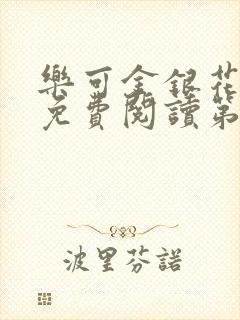 樂可金銀花
免費閱讀第
波里芬諾